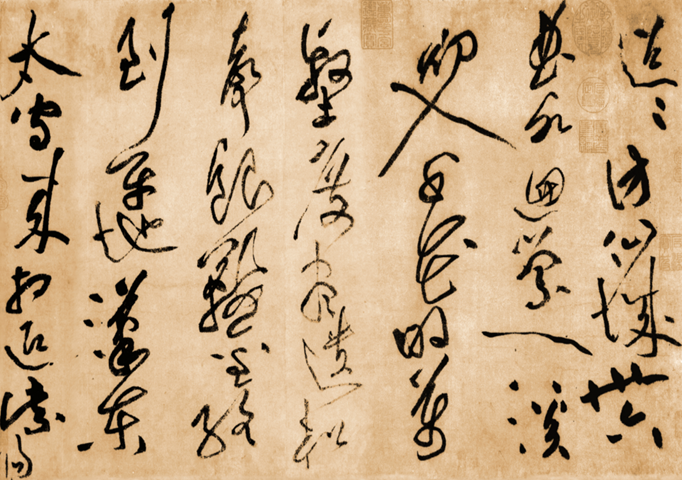 迢〻訪仙城卅六
曲水迴縈一溪
初入千花明萬
壑度盡松
聲銀鞍金絡
到平地漢東
太守來相迎紫陽